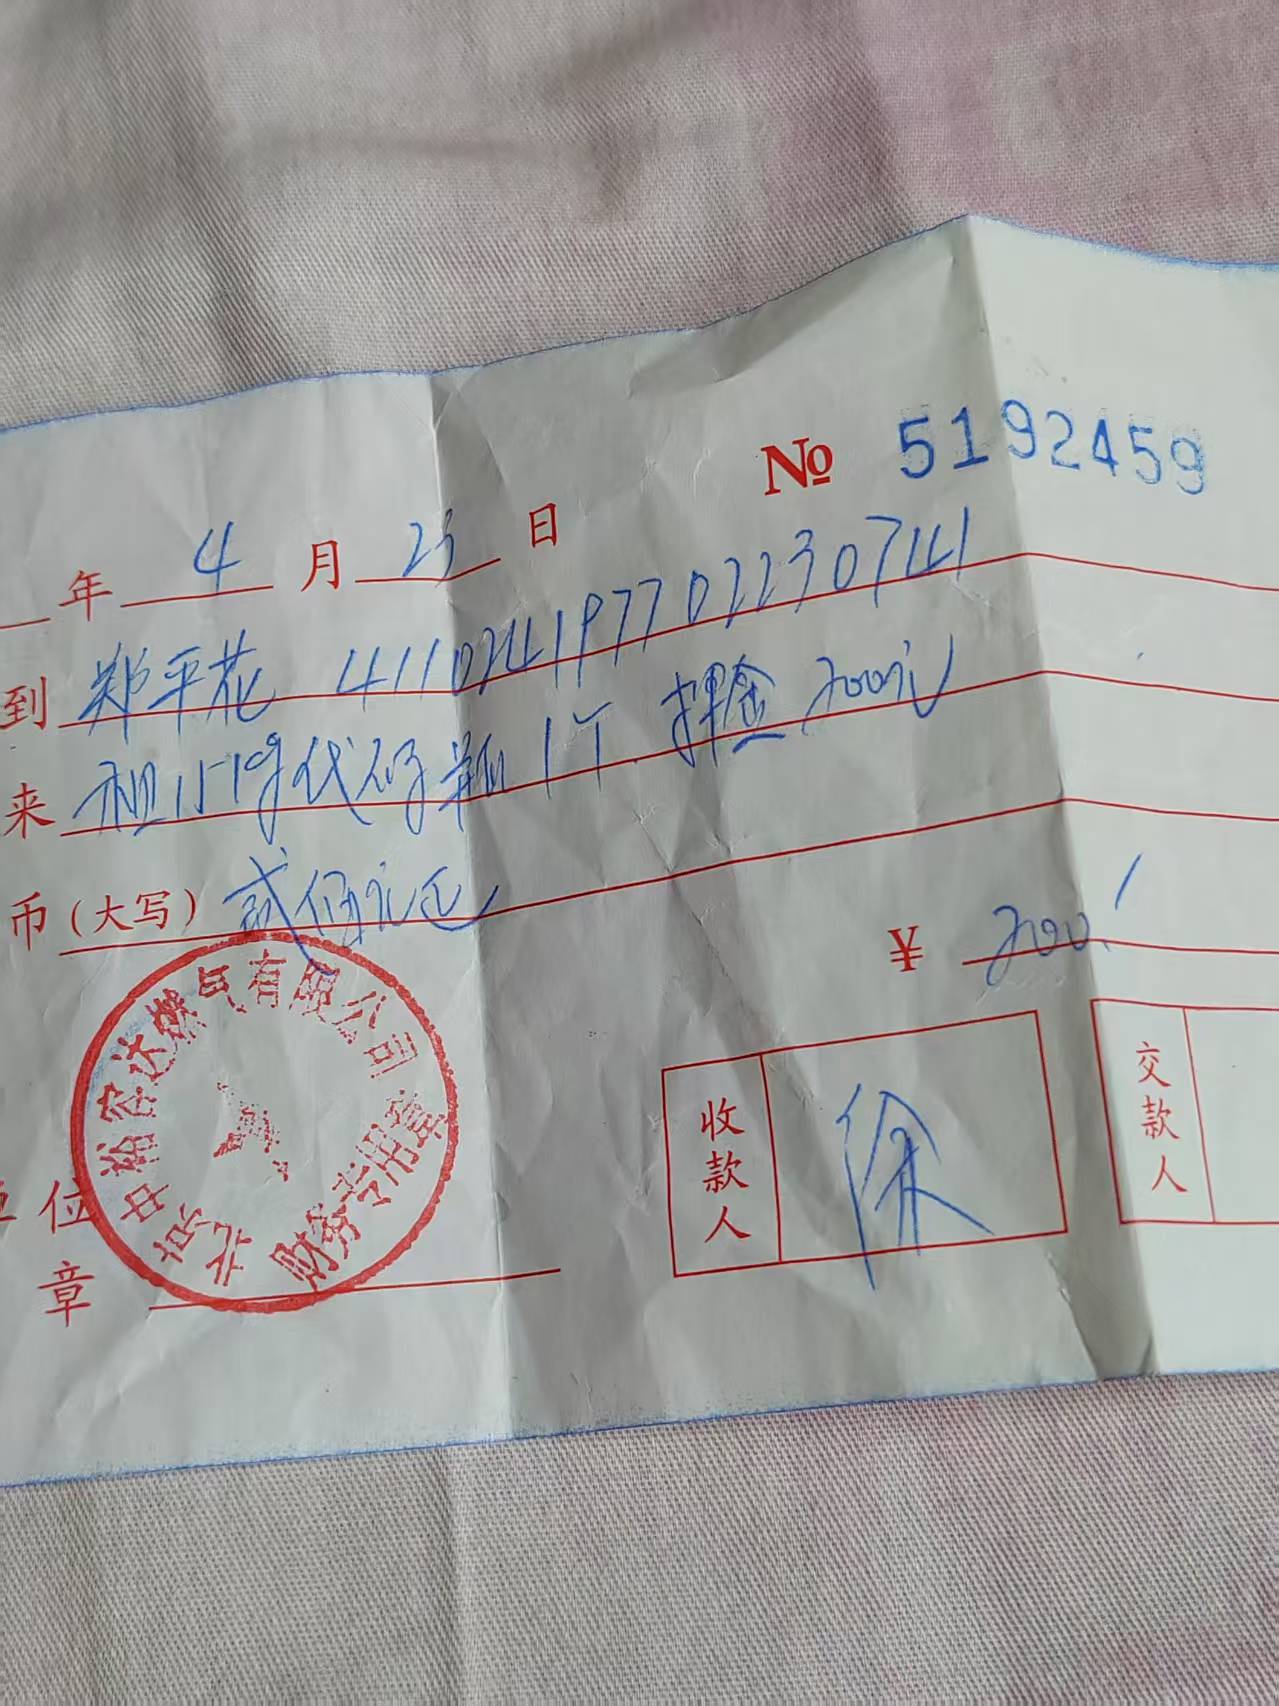 № 5192459
年 4 月 23 日
到 郑平花 411024197702230741
来 租15kg代码瓶1个 押金200元
币(大写) 贰佰元正
¥ 200.
北京中裕农达燃气有限公司
财务专用章
位
章
收款人 徐
交款人